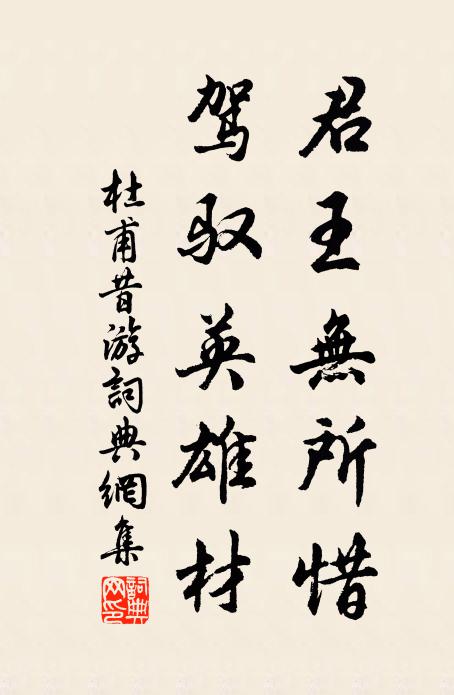 君王無所惜
驾驭英雄材
杜甫昔游詞典網集
詞典
网印